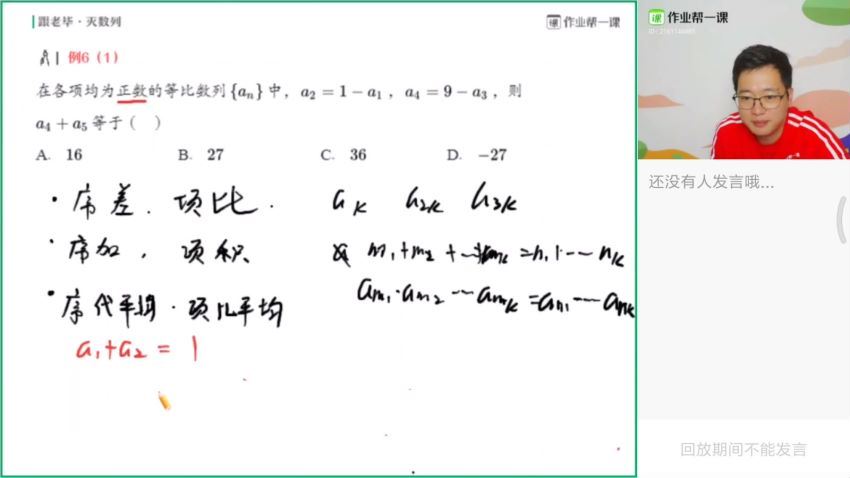 跟老毕·灭数列
作业帮一课
例6（1）
在各项均为正数的等比数列{aₙ}中，a₂ = 1 − a₁，a₄ = 9 − a₃，则
a₄ + a₅ 等于（ ）
A. 16 B. 27 C. 36 D. −27
·序差．项比．
aₖ a₂ₖ a₃ₖ
·序加，项积
m₁+m₂+…+mₖ=n₁+…nₖ
·序代平均．项几平均
aₘ₁·aₘ₂…aₘₖ=aₙ₁…aₙₖ
a₁+a₂ = 1
作业帮一课
还没有人发言哦...
回放期间不能发言